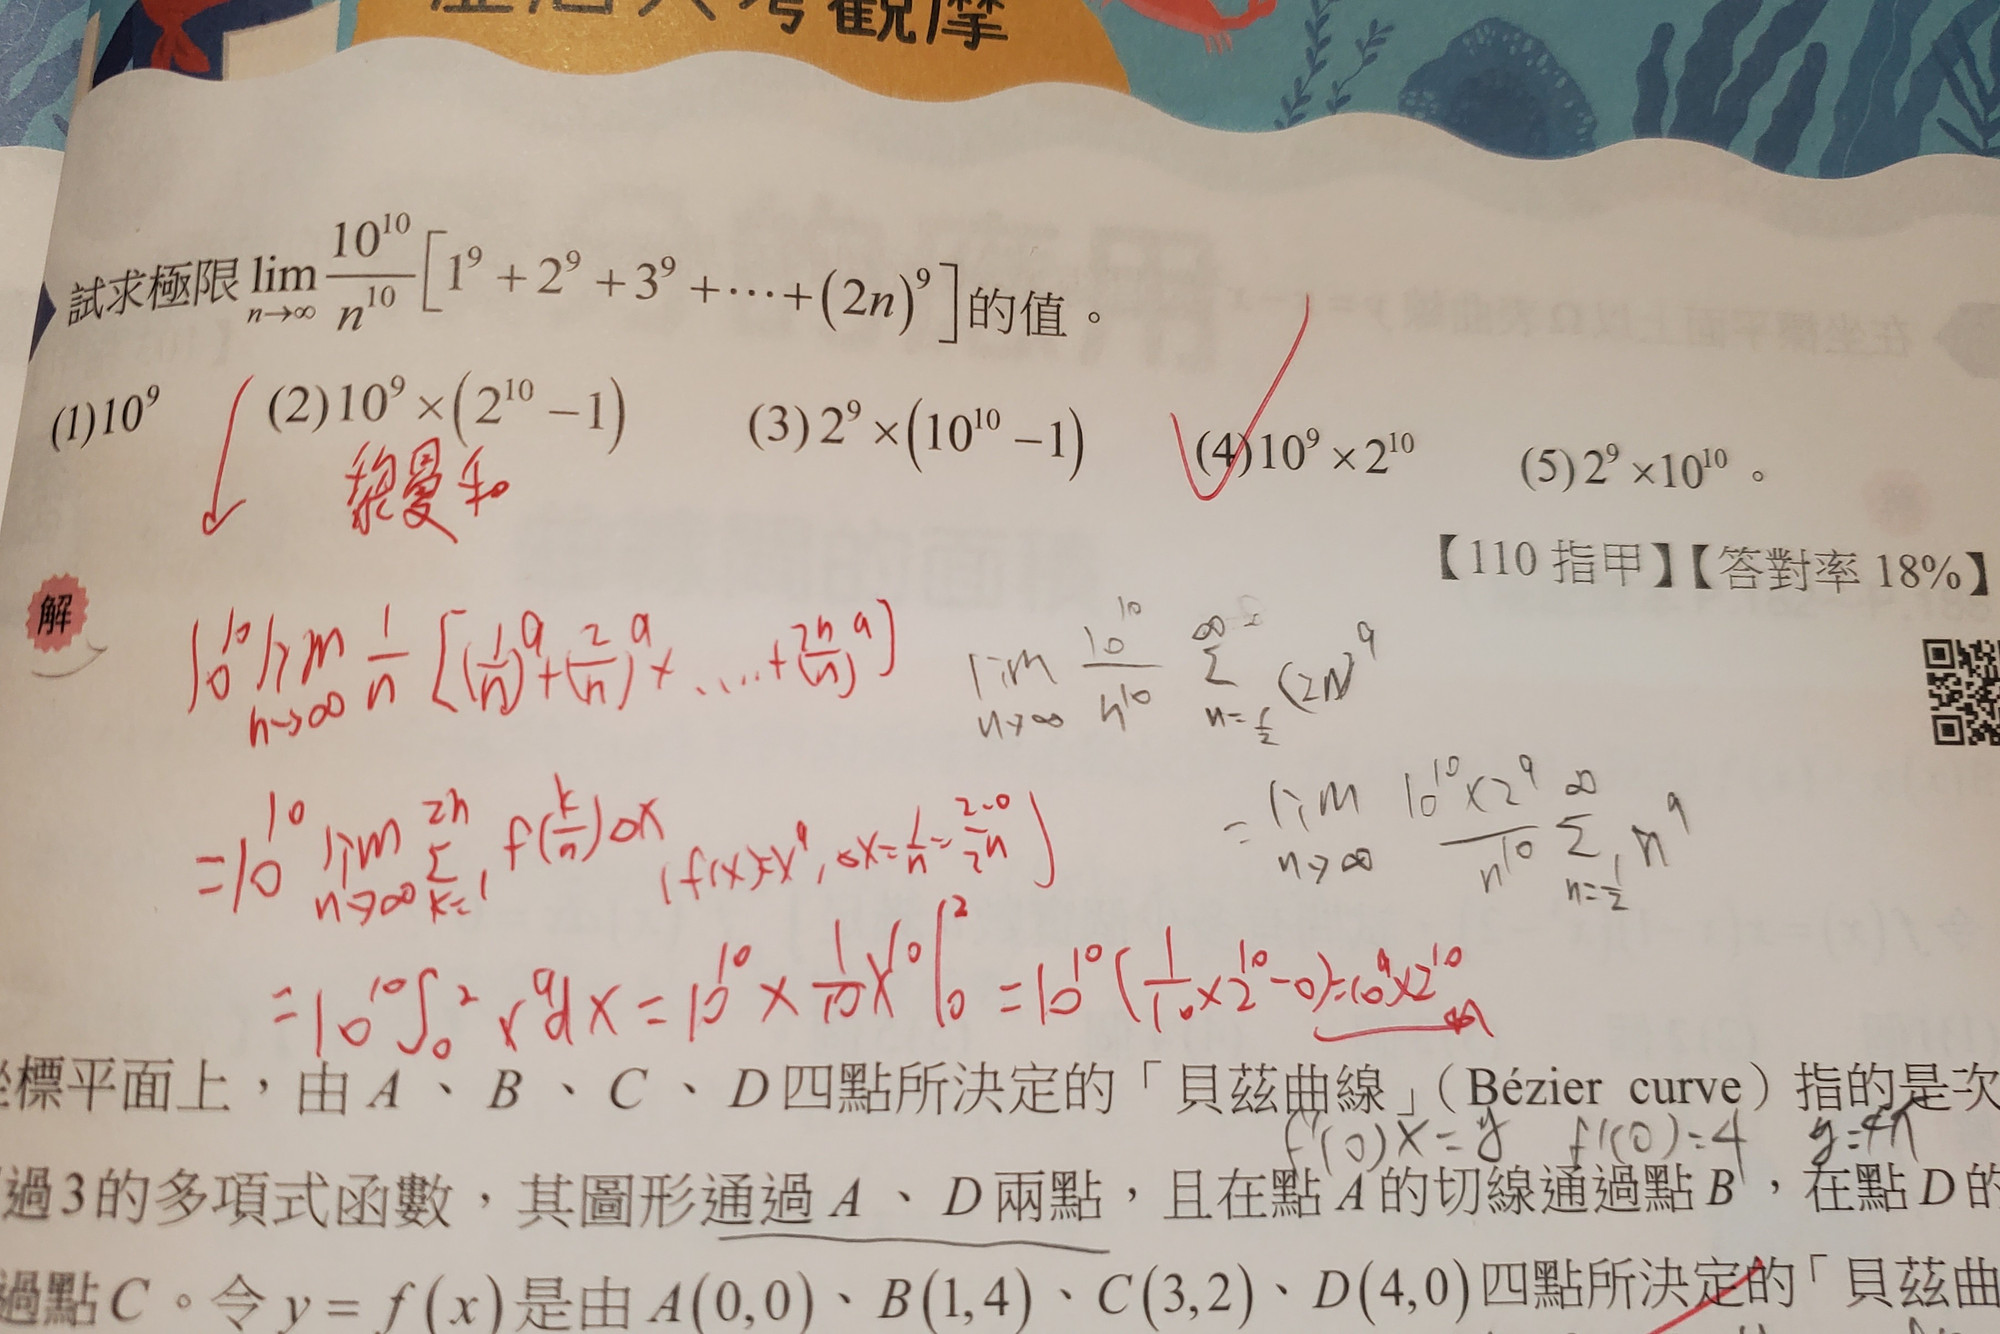 觀摩
試求極限 lim_{n→∞} 10^{10}/n^{10} [1^9 + 2^9 + 3^9 + ⋯ + (2n)^9] 的值。
(1) 10^9 (2) 10^9 × (2^{10} − 1) (3) 2^9 × (10^{10} − 1) (4) 10^9 × 2^{10} (5) 2^9 × 10^{10}。
黎曼和
【110 指甲】【答對率 18%】
解
10^{10} lim_{n→∞} 1/n [(1/n)^9 + (2/n)^9 + ..... + (2n/n)^9]
lim_{n→∞} 10^{10}/n^{10} Σ_{n=1/2}^{∞} (2n)^9
= 10^{10} lim_{n→∞} Σ_{k=1}^{2n} f(k/n) Δx (f(x)=x^9, Δx = 1/n = (2-0)/2n)
= lim_{n→∞} (10^{10} × 2^9)/n^{10} Σ_{n=1/2}^{∞} n^9
= 10^{10} ∫_0^2 x^9 dx = 10^{10} × 1/10 x^{10} |_0^2 = 10^{10} (1/10 × 2^{10} - 0) = 10^9 × 2^{10}
標平面上，由 A、B、C、D 四點所決定的「貝茲曲線」（Bézier curve）指的是次
f'(0)x = y f'(0) = 4 y = 4x
過 3 的多項式函數，其圖形通過 A、D 兩點，且在點 A 的切線通過點 B，在點 D 的
過點 C。令 y = f(x) 是由 A(0,0)、B(1,4)、C(3,2)、D(4,0) 四點所決定的「貝茲曲